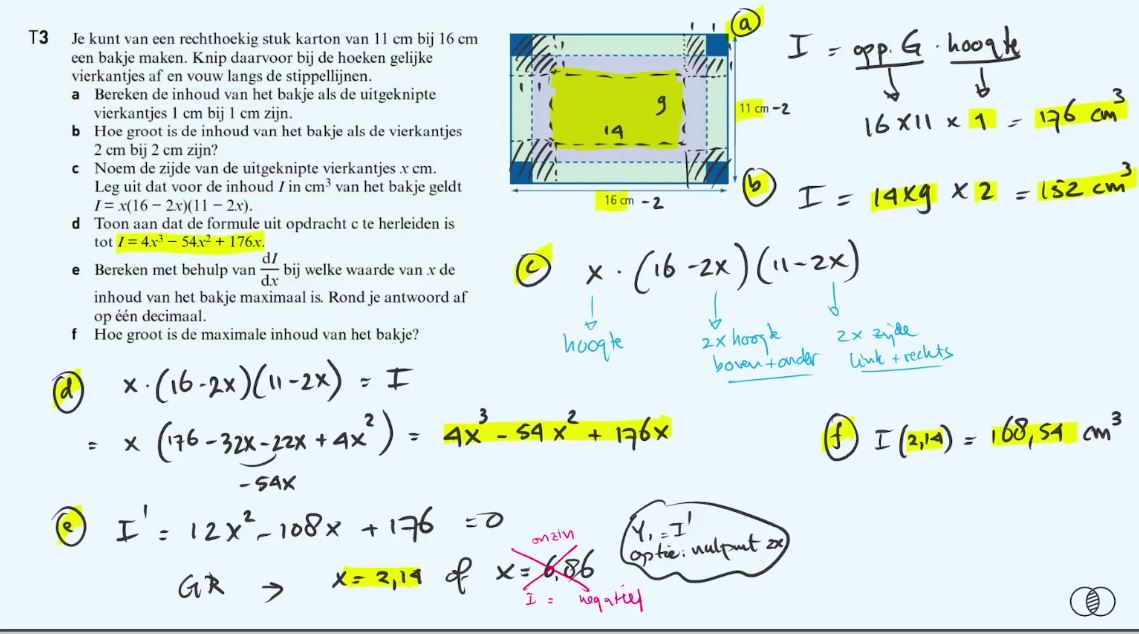 T3 Je kunt van een rechthoekig stuk karton van 11 cm bij 16 cm
een bakje maken. Knip daarvoor bij de hoeken gelijke
vierkantjes af en vouw langs de stippellijnen.
a Bereken de inhoud van het bakje als de uitgeknipte
vierkantjes 1 cm bij 1 cm zijn.
b Hoe groot is de inhoud van het bakje als de vierkantjes
2 cm bij 2 cm zijn?
c Noem de zijde van de uitgeknipte vierkantjes x cm.
Leg uit dat voor de inhoud I in cm³ van het bakje geldt
I = x(16 − 2x)(11 − 2x).
d Toon aan dat de formule uit opdracht c te herleiden is
tot I = 4x³ − 54x² + 176x.
e Bereken met behulp van dI/dx bij welke waarde van x de
inhoud van het bakje maximaal is. Rond je antwoord af
op één decimaal.
f Hoe groot is de maximale inhoud van het bakje?
9
14
11 cm -2
16 cm -2
a I = opp. G · hoogte
16 x 11 x 1 = 176 cm³
b I = 14 x 9 x 2 = 152 cm³
c x · (16 -2x)(11-2x)
hoogte
2x hoogte
boven + onder
2x zijde
link + rechts
d x · (16-2x)(11-2x) = I
= x (176 - 32x - 22x + 4x²) = 4x³ - 54x² + 176x
-54x
e I' = 12x² - 108x + 176 = 0
GR → x = 2,14 of x = 6,86
onzin
I = negatief
Y₁ = I'
optie: nulpunt 2x
f I(2,14) = 168,54 cm³